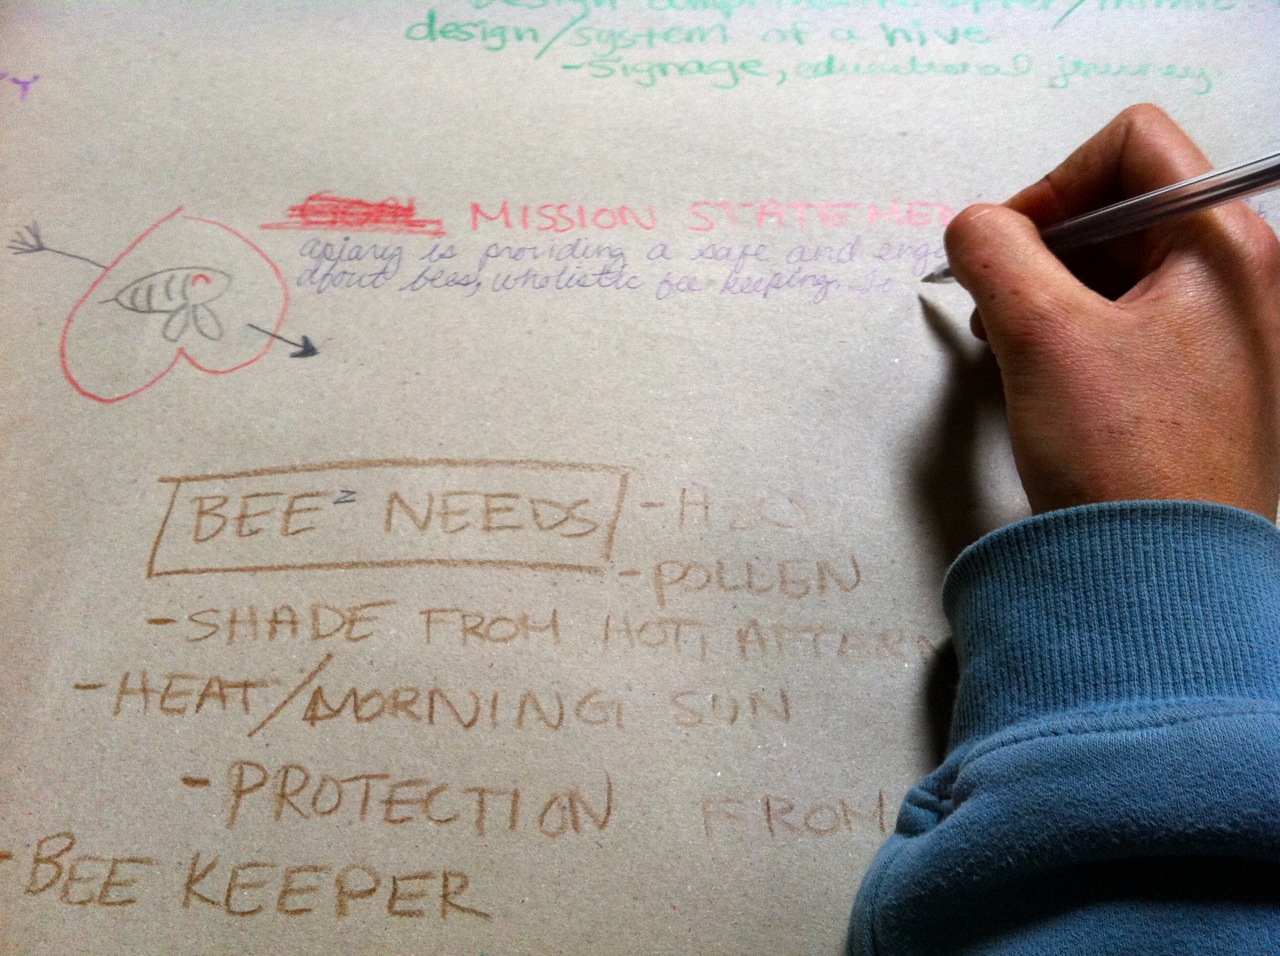 design
design/system of a hive
-signage, educational journey
Y
GOAL MISSION STATEMEN
apiary is providing a safe and enga
about bees, wholistic bee keeping. To
BEE² NEEDS
-H2O
-POLLEN
-SHADE FROM HOT, AFTERN
-HEAT/MORNING SUN
-PROTECTION FROM
-BEE KEEPER